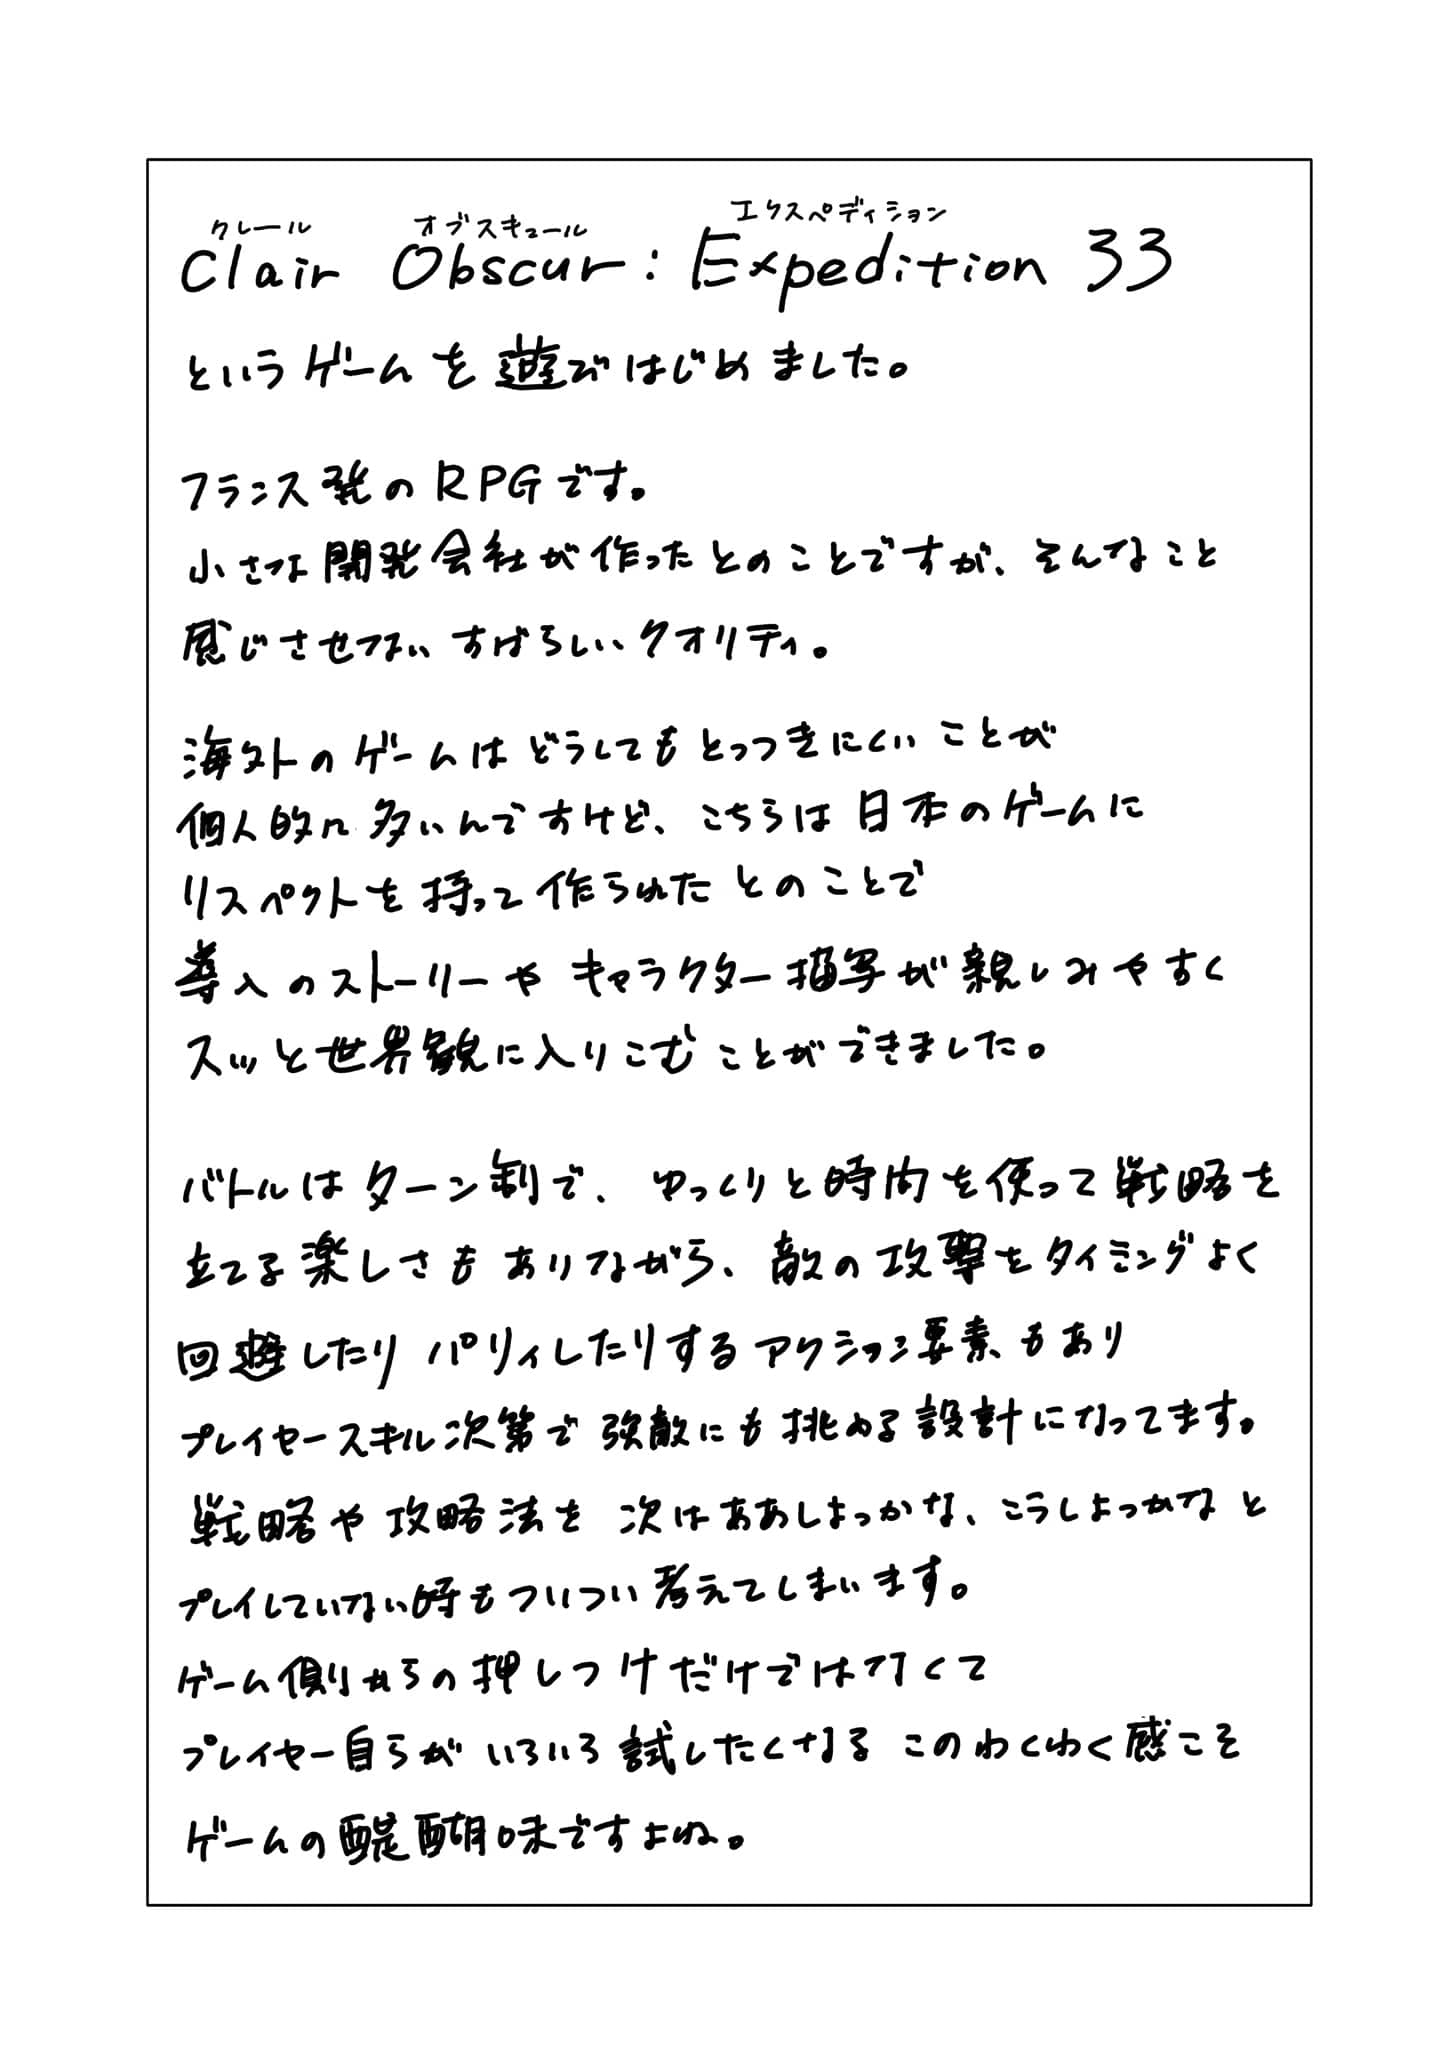 クレール オブスキュール エクスペディション
Clair Obscur : Expedition 33
というゲームを遊びはじめました。
フランス発のRPGです。
小さな開発会社が作ったとのことですが、そんなこと
感じさせないすばらしいクオリティ。
海外のゲームはどうしてもとっつきにくいことが
個人的に多いんですけど、こちらは日本のゲームに
リスペクトを持って作られたとのことで
導入のストーリーやキャラクター描写が親しみやすく
スッと世界観に入りこむことができました。
バトルはターン制で、ゆっくりと時間を使って戦略を
立てる楽しさもありながら、敵の攻撃をタイミングよく
回避したりパリィしたりするアクション要素もあり
プレイヤースキル次第で強敵にも挑める設計になってます。
戦略や攻略法を次はああしよっかな、こうしよっかなと
プレイしていない時もついつい考えてしまいます。
ゲーム側からの押しつけだけではなくて
プレイヤー自らがいろいろ試したくなるこのわくわく感こそ
ゲームの醍醐味ですよね。